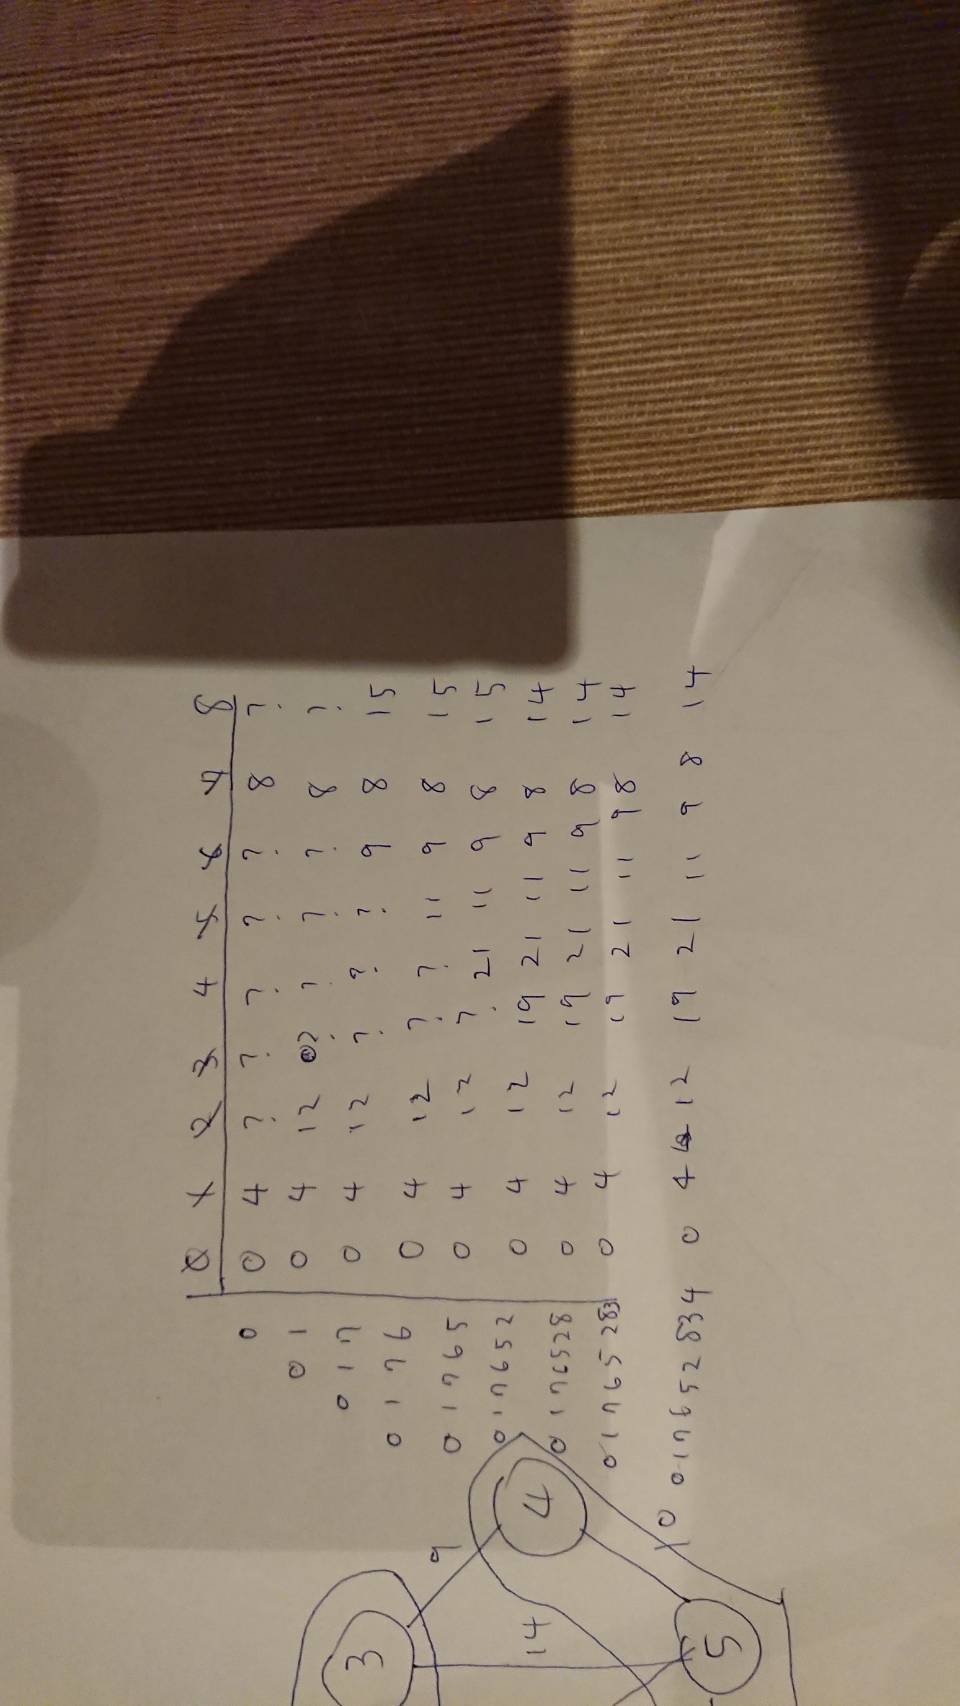 0 1 2 3 4 5 6 7 8
0 0 4 ? ? ? ? ? 8 ?
0 1 0 4 12 ? ? ? ? 8 ?
0 1 7 0 4 12 ? ? ? 9 8 15
0 1 7 6 0 4 12 ? ? 11 9 8 15
0 1 7 6 5 0 4 12 ? 21 11 9 8 15
0 1 7 6 5 2 0 4 12 19 21 11 9 8 14
0 1 7 6 5 2 8 0 4 12 19 21 11 9 8 14
0 1 7 6 5 2 8 3 0 4 12 19 21 11 9 8 14
0 1 7 6 5 2 8 3 4 0 4 12 19 21 11 9 8 14
3
9
14
4
10
5